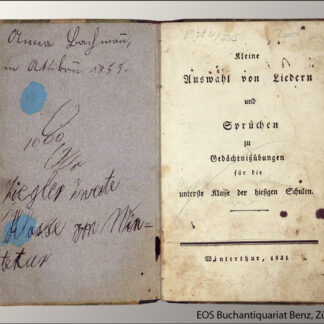 Anna Bachmañ,
in Attikoñ 1859.
1000
Ziegler zweite
Klasse von Win-
tertur
Kleine
Auswahl von Liedern
und
Sprüchen
zu
Gedächtnißübungen
für die
unterste Klasse der hiesigen Schulen.
Winterthur, 1831
EOS Buchantiquariat Benz, Zü